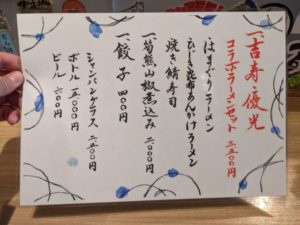 一、吉寿優光
コラボラーメンセット 二、五〇〇円
はまぐりラーメン
ひしき昆布あんかけラーメン
焼き鯖寿司
一、筍熊山椒煮込み 二、〇〇〇円
一、餃子 四〇〇円
シャンパングラス 二、五〇〇円
ボトル 一五、〇〇〇円
ビール 六〇〇円